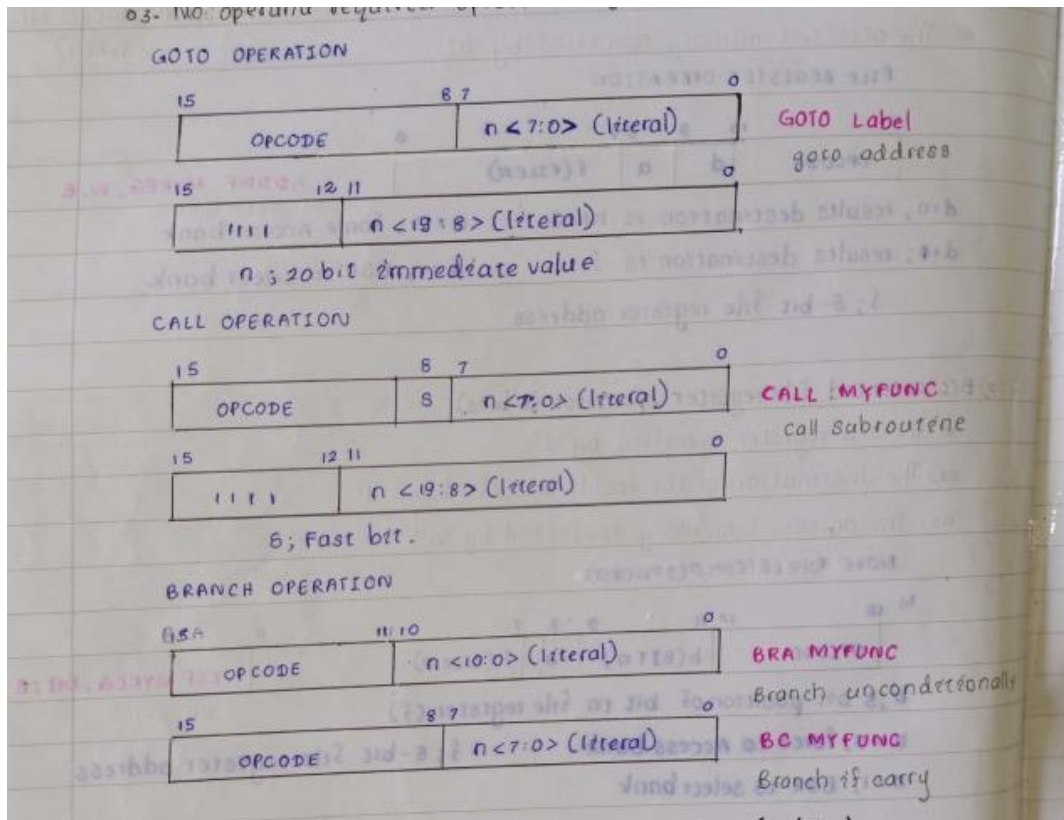 03. No operand required
GOTO OPERATION
15 8 7 0
OPCODE n <7:0> (literal) GOTO Label
goto address
15 12 11 0
1111 n <19:8> (literal)
n ; 20 bit immediate value
CALL OPERATION
15 8 7 0
OPCODE S n <7:0> (literal) CALL MYFUNC
call subroutine
15 12 11 0
1111 n <19:8> (literal)
S; Fast bit.
BRANCH OPERATION
11 10 0
OPCODE n <10:0> (literal) BRA MYFUNC
Branch unconditionally
15 8 7 0
OPCODE n <7:0> (literal) BC MYFUNC
Branch if carry